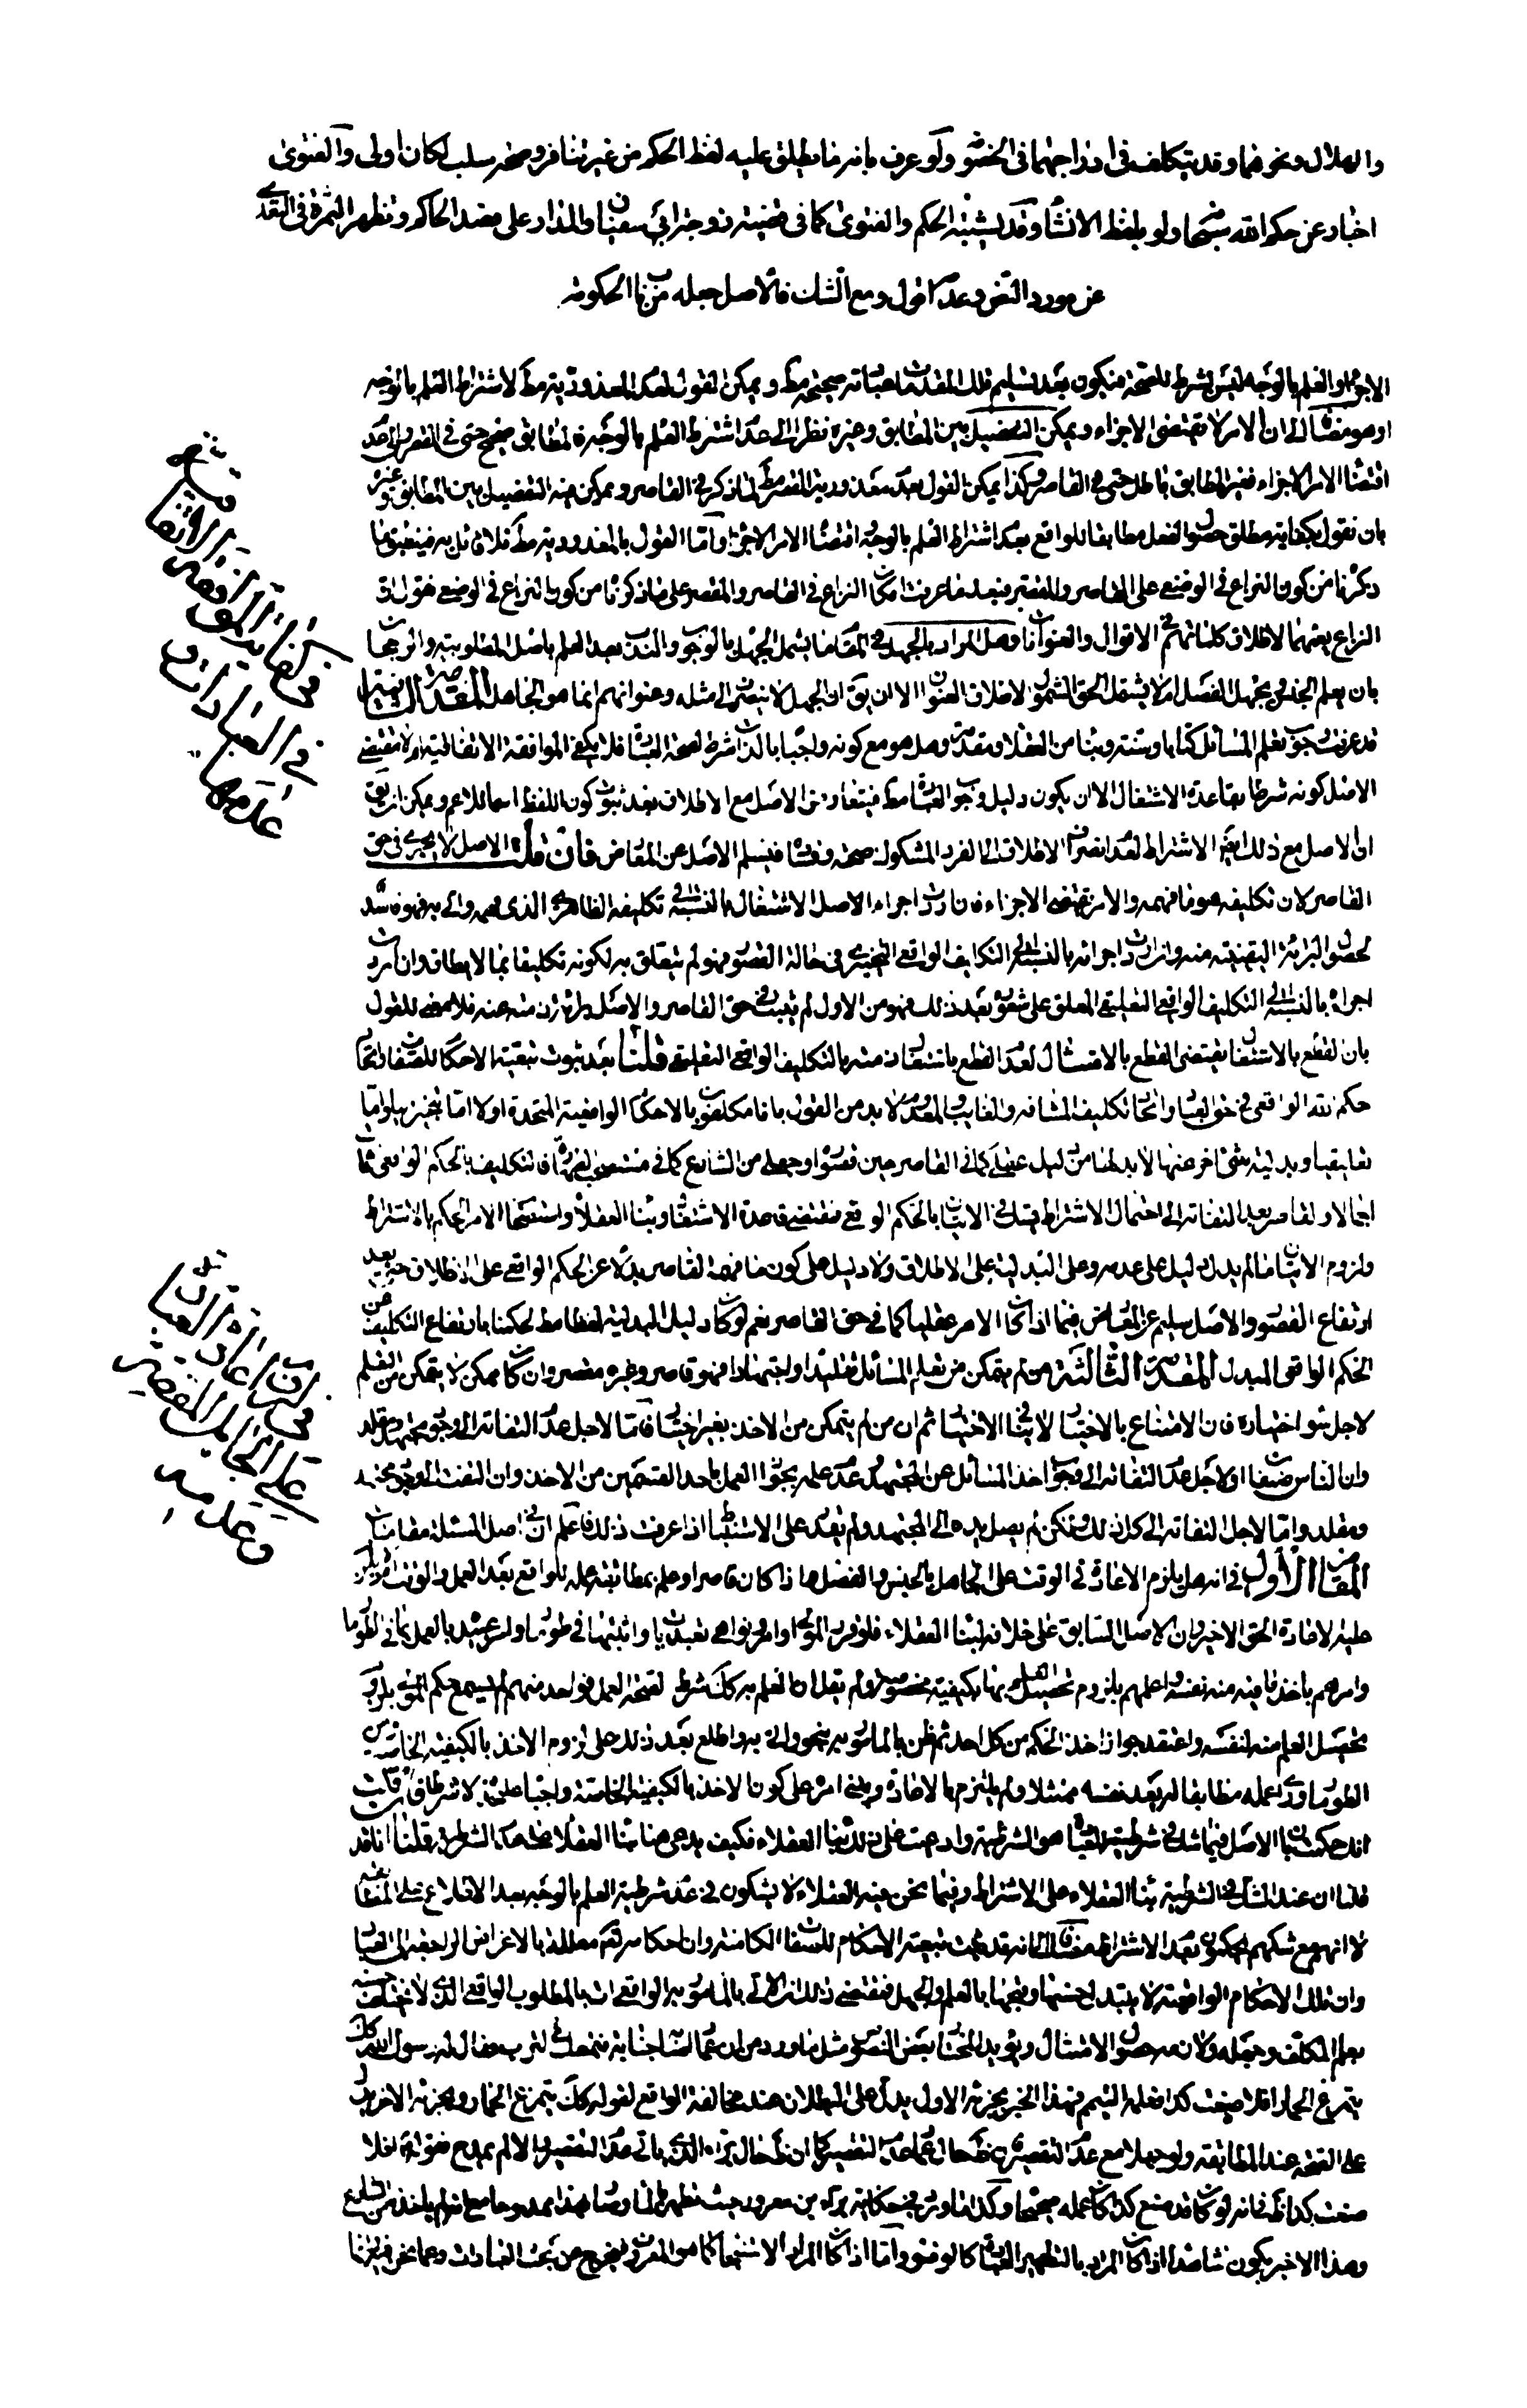 والهلال ونحوهما وقد يتكلف في ادراجهما في الخصو ولو عرف بانه ما يطلق عليه لفظ الحكم من غير تنافر وصحه سلب لكان اولى والفتوى
اخبار عن حكم الله سبحا ولو بلفظ الانشا وقد يشتبه الحكم والفتوى كما في قضيته زوجة ابي سفيان والمدار على قصد الحاكم وتظهر الثمرة في التعدي
عن مورد النص وعدمه اقول ومع الشك فالاصل جعله من باب الحكومة
الاجزاء والعلم بالوجه ليس بشرط للصحة فيكون بعد تسليم تلك المقدمات عباداته صحيحة مط ويمكن القول بعدم المعذورية مط لاشتراط العلم بالوجه
او هو مضافا الى ان الامر لا يقتضي الاجزاء ويمكن التفصيل بين المطابق وغيره نظرا الى عدم اشتراط العلم بالوجه فالمطابق صحيح حتى في المقصر والى عدم
اقتضا الامر الاجزاء فغير المطابق باطل حتى في القاصر وكذا يمكن القول بعدم معذورية المقصر مط لما ذكر في القاصر ويمكن فيه التفصيل بين المطابق وغيره
بان نقول بكفاية مطلق حصول الفعل مطابقا للواقع بعدم اشتراط العلم بالوجه اقتضا الامر الاجزا واما القول بالمعذورية مط فلا قائل به فينبغي ما
ذكرنا من كون النزاع في الوضعي على القاصر والمقصر فبعد ما عرفت امكان النزاع في القاصر والمقصر على ما ذكرنا من كون النزاع في الوضعي فنقول ان
النزاع يعمهما لاطلاق كلماتهم في الاقوال والعنوانات وهل المراد بالجهل في المقام ما يشمل الجهل بالوجوب والندب بعد العلم باصل المطلوبية والرجحان
بان يعلم الجنس ويجهل الفصل ام لا يشمل الحق الشمول لاطلاق العنوان الا ان يق ان الجهل لا ينصرف الى مثله وعنوانهم انما هو الجاهل المقدمة الثانية
قد عرفت وجوب تعلم المسائل كتابا وسنة وبنا من العقلا ومقدمة وهل هو مع كونه واجبا بالذات شرط لصحة العبادة فلا يكفي الموافقة الاتفاقية ام لا مقتضى
الاصل كونه شرطا بقاعدة الاشتغال الا ان يكون دليل وجوب العبادة مط فيتعارض الاصل مع الاطلاق بعد ثبوت كون اللفظ اسما للاعم ويمكن ان يق
ان الاصل مع ذلك يقتضي الاشتراط لعدم انصراف الاطلاق الى الفرد المشكوك صحته وفسا فيسلم الاصل عن المعارض فان قلت الاصل لا يجري في حق
القاصر لان تكليفه هو ما فهمه والامر يقتضي الاجزاء فان اردت اجراء الاصل الاشتغال بالنسبة الى تكليفه الظاهري الذي فهمه واتى به فهو فاسد
لحصول البرائة اليقينية منه وان اردت اجرائه بالنسبة الى التكليف الواقعي التنجيزي في حالة القصور فهو لم يتعلق به لكونه تكليفا بما لا يطاق وان اردت
اجراءه بالنسبة الى التكليف الواقعي التعليقي المعلق على شعوره بعد ذلك فهو من الاول لم يثبت في حق القاصر والاصل برائة ذمته عنه فلا معنى للقول
بان القطع بالاشتغال يقتضي القطع بالامتثال لعدم القطع باشتغال ذمته بالتكليف الواقعي التعليقي قلنا بعد ثبوت تبعية الاحكام للصفات واتحاد
حكم الله الواقعي في حق العباد واتحاد تكليف المشافه والغايب والمعدوم لا بد من القول بانا مكلفون بالاحكام الواقعية المتحدة اولا اما تنجيزيا واما
تعليقيا وبدلية شئ اخر عنها لا بد لها من دليل عقلي كما في القاصر حين قصوره او جعلي من الشارع كما في فالتكليف بالحكم الواقعي ثابت
اجمالا والقاصر بعد التفاته الى احتمال الاشتراط يشك في الاتيان بالحكم الواقعي فمقتضى قاعدة الاشتغال وبنا العقلا واستصحاب الامر الحكم بالاشتراط
ولزوم الاتيان ما لم يدل دليل على عدمه وعلى البدلية على الاطلاق ولا دليل على كون ما فهمه القاصر بدلا عن الحكم الواقعي على الاطلاق حتى بعد
ارتفاع القصور والاصل سليم عن المعارض فيما اذا كان الامر عقليا كما في حق القاصر نعم لو كان دليل البدلية لفظا مط لحكمنا بارتفاع التكليف عن
الحكم الواقعي المبدل المقدمة الثالثة من لم يتمكن من تعلم المسائل تقليدا او اجتهادا فهو قاصر وغيره مقصر وان كان ممكن لا يتمكن من العلم
لاجل سوء اختياره فان الامتناع بالاختيار لا ينافي الاختيار ثم ان من لم يتمكن من الاخذ بغير اختيار فاما لاجل عدم التفاته الى وجود مجتهد ومقلد
وان الناس صنفان او لاجل عدم التفاته الى وجوب اخذ المسائل عن المجتهد وعدم علمه بوجوب العمل باحد القسمين من الاخذ وان التفت الى وجود مجتهد
ومقلد واما لاجل التفاته الى كل ذلك ولكن لم يصل يده الى المجتهد ولم يقدر على الاستنباط اذا عرفت ذلك فاعلم ان في اصل المسئلة مقامات
المقام الاول في انه هل يلزم الاعادة في الوقت على الجاهل بالجنس والفصل اذا كان قاصرا وعلم بمطابقة عمله للواقع بعد العمل والوقت ام لا
عليه الاعادة الحق الاخير وان الاصل السابق على خلافه لبنا العقلاء فلو قرر المولى اوامر ونواهي لعبيده واثبتها في طومار ولم يرض بالعمل بما في الطومار
وامرهم باخذ ما فيه منه نفسه واعلمهم بلزوم تحصيل العلم بها بكيفية مخصوصة ولم يقل ان العلم به كك شرط لصحة العمل فواحد منهم لم يسمع حكم المولى بلزوم
تحصيل العلم منه لنفسه واعتقد جواز اخذ الحكم من كل احد ثم ظن بالمامور به بنحو واتى به واطلع بعد ذلك على لزوم الاخذ بالكيفية الخاصة من
الطومار وراى عمله مطابقا له يعد نفسه ممتثلا ولم يلتزم بالاعادة وبنى امره على كون الاخذ بالكيفية الخاصة واجبا عليه لا شرطا فان قلت
انك حكمت بان الاصل فيما شك في شرطيته للعبادة هو الشرطية وادعيت على ذلك بنا العقلاء فكيف يدعى هنا بنا العقلا على عدم الشرطية قلنا انا قد
قلنا ان عند الشك في الشرطية بنا العقلاء على الاشتراط وفيما نحن فيه العقلاء لا يشكون في عدم شرطية العلم بالوجه بعد الاطلاع على المطابقة
لا انهم مع شكهم يحكمون بعدم الاشتراط مضافا الى انه قد ثبت تبعية الاحكام للصفات الكامنة وان احكامه تعم معللة بالاغراض الراجعة الى العباد
وان تلك الاحكام الواقعية لا يتبدل حسنها وقبحها بالعلم والجهل فمقتضى ذلك ان الاتي بالمامور به الواقعي ات بالمطلوب الواقعي الذي لا يختلف حسنه
بعلم المكلف وجهله ولازمه حصول الامتثال ويؤيد المختار بعض النصوص مثل ما ورد من ان عمارا اصابته جنابة فتمعك في التراب فقال له رسول الله كك
يتمرغ الحمار افلا صنعت كذا فعلمه التيمم فهذا الخبر بجزئه الاول يدل على البطلان عند مخالفة الواقع لقوله كك يتمرغ الحمار وبجزئه الاخر يدل
على الصحة عند المطابقة ولو جهلا مع عدم التقصير
صنعت كذا ظ فانه لو كان قد صنع كذا كان عمله صحيحا وكذا ما ورد في حكاية براء بن معرور حيث تطهر بالماء وصار بهذا ممدوحا مع انه لم ياخذه من الشارع
وهذا الاخير يكون شاهدا اذا كان المراد بالتطهير العبادة كالوضوء واما اذا كان المراد الاستنجاء كما هو المعروف فيخرج من بحث العبادات وعما نحن فيه
في كفاية الموافقة الاتفاقية
في العبادات و
عدمها
في لزوم اعادة العبادات
على الجاهل المقصر
وعدمه